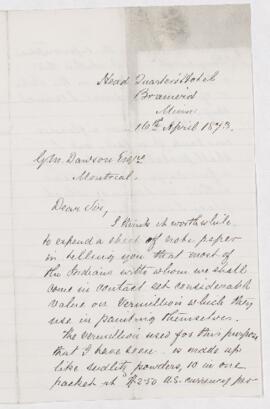 Head Quarters Hotel
Brainerd
Minn
16th April 1873.
G. M. Dawson Esqre
Montreal.
Dear Sir,
I think it worth while
to expend a sheet of note paper
in telling you that most of
the Indians with whom we shall
come in contact set considerable
value on Vermillion which they
use in painting themselves.
The vermillion used for this purpose
that I have seen is made up
like seidlitz powders, 10 in one
packet $2.50 U.S. currency per